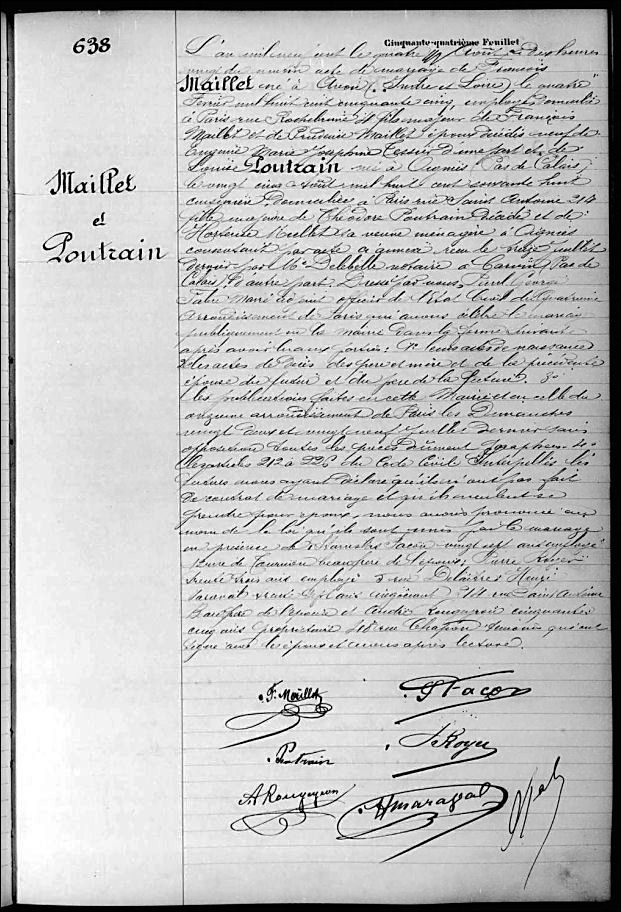 638
Cinquante-quatrième Feuillet
Maillet
et
Poutrain
L'an mil neuf cent le quatre Août à dix heures
du matin acte de mariage de François
Maillet né à Avon (Indre et Loire) le quatre
Février mil huit cent cinquante cinq, employé, domicilié
à Paris rue Rochebrune fils majeur de François
Maillet et de Maillet, époux décédés, veuf de
Eugénie Marie Joséphine Tessier d'une part et de
Louise Poutrain née à Oignies (Pas de Calais)
le vingt cinq Août mil huit cent soixante huit
cuisinière, domiciliée à Paris rue Saint Antoine 214
fille majeure de Théodore Poutrain décédé et de
Hortense sa veuve ménagère à Oignies
consentant par acte reçu le treize Juillet
dernier par Me Delebelle notaire à Carvin (Pas de
Calais) d'autre part. Dressé par nous,
Fabre Maire adjoint officier de l'Etat Civil du Quatrième
arrondissement de Paris qui avons célébré le mariage
publiquement en la mairie dans la forme suivante
après avoir lu aux parties: 1° leurs actes de naissance
les actes de décès des père et mère et de la précédente
épouse du futur et du père de la future 3°
les publications faites en cette Mairie et en celle du
onzième arrondissement de Paris les Dimanches
vingt deux et vingt neuf Juillet dernier sans
opposition toutes les pièces dûment paraphées 4°
les articles 212 à 226 du Code Civil Interpellés les
futurs nous ayant déclaré qu'ils n'ont pas fait
de contrat de mariage et qu'ils veulent se
prendre pour époux, nous avons prononcé au
nom de la loi qu'ils sont unis par le mariage
en présence de Stanislas Facon vingt sept ans employé
rue de Tournon beau frère de l'épouse; Pierre Royer
trente trois ans employé 5 rue Henri
Maragal ans 214 rue Saint Antoine
beau père de l'épouse et André Rougeron cinquante
cinq ans propriétaire 18 rue Chapon témoins qui ont
signé avec les époux et nous après lecture.
F. Maillet
S Facon
Poutrain
P Royer
A Rougeron
H Maragal